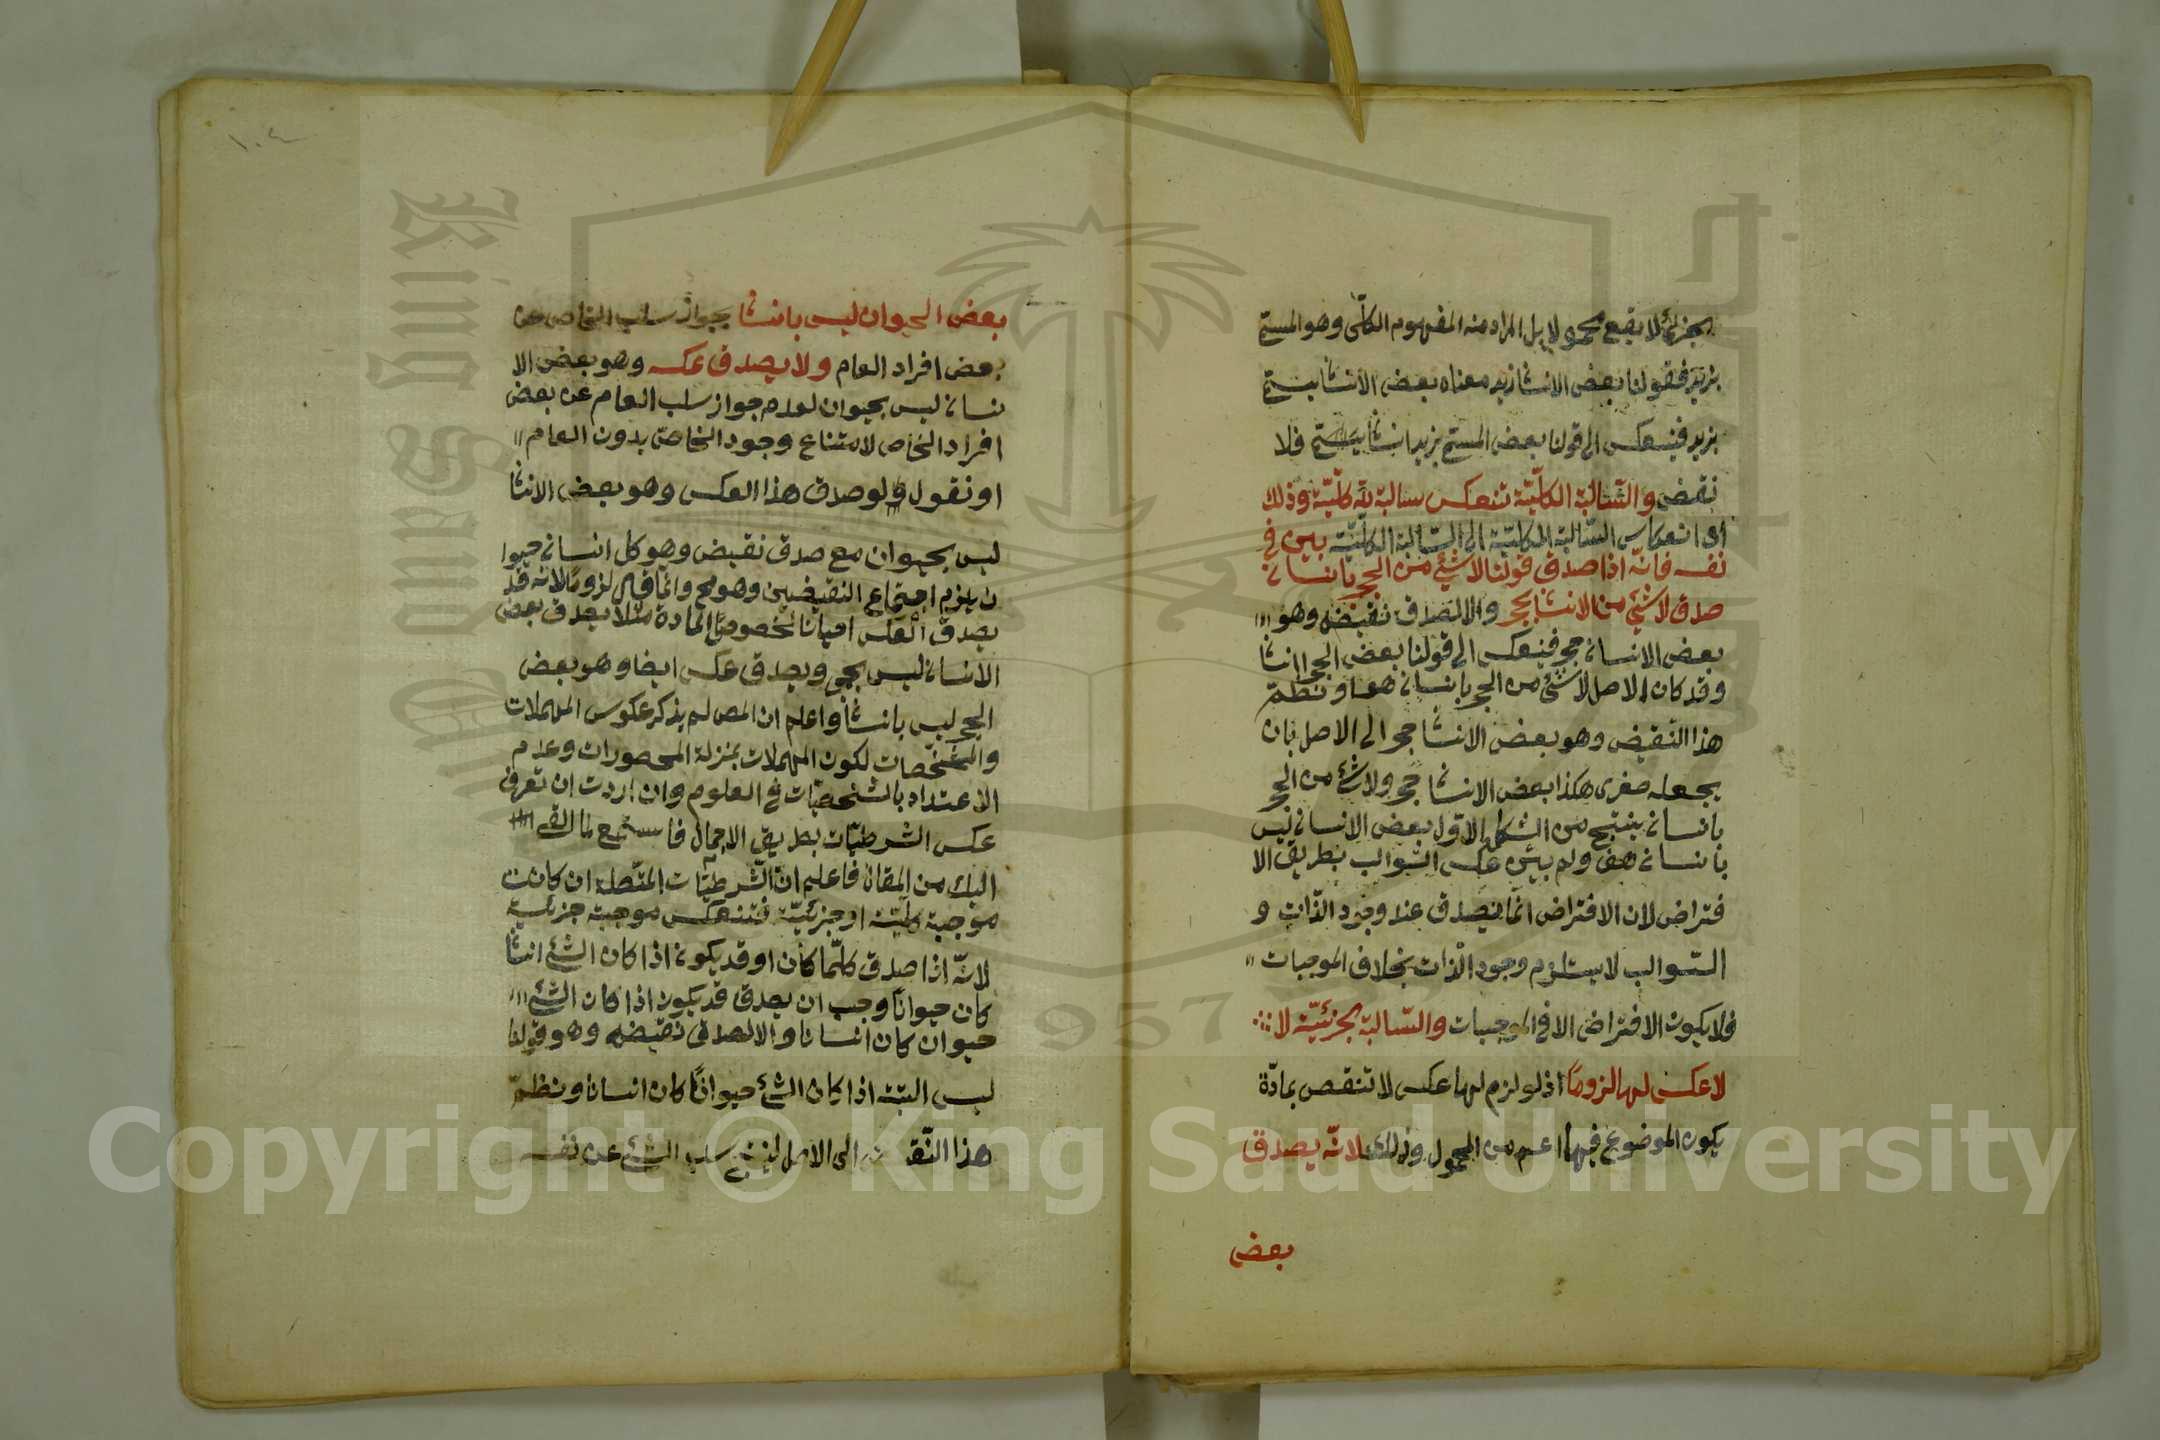 بجزئى لا يقع محمولا بل المراد منه المفهوم الكلّى وهو المسمّى
بزيد فقولنا بعض الانسا زيد معناه بعض الانسا يسمّى
بزيد فينعكس الى قولنا بعض المسمّى بزيد انسا فلا
نقض والسّالبة الكلّيّة تنعكس سالبة كلّيّة وذلك
اى انعكاس السّالبة الكليّة الى السّالبة الكليّة بيّن فى
نفسه فانّه اذا صدق قولنا لاشئ من الحجر بانسان
صدق لاشئ من الانسا بحجر والا لصدق نقيضه وهو
بعض الانسان حجر فينعكس الى قولنا بعض الحجر انسا
وقد كان الاصل لاشئ من الحجر بانسان هف او نضمّ
هذا النّقيض وهو بعض الانسا حجر الى الاصل بان
يجعله صغرى هكذا بعض الانسا حجر ولاشئ من الحجر
بانسان ينتج من الشكل الاوّل بعض الانسان ليس
بانسان هف ولم يبيّن عكس السّوالب بطريق الا
فتراض لان الافتراض انّما يصدق عند وجود الذّات و
السّوالب لا يستلزم وجود الذّات بخلاف الموجبات
فلا يكون الافتراض الا فى الموجبات والسّالبة الجزئيّة لا
لا عكس لها لزومًا اذ لو لزم لها عكس لانتقض بمادّة
يكون الموضوع فيها اعم من المحمول وذلك لانّه يصدق
بعض
١٠٤
بعض الحيوان ليس بانسا بجواز سلب الخاص عن
بعض افراد العام ولا يصدق عكسه وهو بعض الا
نسان ليس بحيوان لعدم جواز سلب العام عن بعض
افراد الخاص لامتناع وجود الخاص بدون العام
او نقول لو صدق هذا العكس وهو بعض الانسا
ليس بحيوان مع صدق نقيض وهو كل انسان حيوا
ن يلزم اجتماع النقيضين وهو مح وانّما قال لزومًا لانه قد
يصدق العكس احيانا لخصوص المادة مثلا يصدق بعض
الانسان ليس بحجر ويصدق عكسه ايضا وهو بعض
الحجر ليس بانسا واعلم ان المص لم يذكر عكوس المهملات
والشّخصيّات لكون المهملات بمنزلة المحصورات وعدم
الاعتداد بالشّخصيّات فى العلوم وان اردت ان تعرف
عكس الشّرطيّات بطريق الاجمال فاستمع لما القى
اليك من المقالة فاعلم انّ الشّرطيّات المتّصلة ان كانت
موجبة كليّة او جزئيّة فتنعكس موجبة جزئيّة
لانّه اذا صدق كلّما كان او قد يكون اذا كان الشئ انسا
كان حيوانًا وجب ان يصدق قد يكون اذا كان الشئ
حيوان كان انسانا والا لصدق نقيضه وهو قولنا
ليس البتة اذا كان الشئ حيوانًا كان انسانا ونضمّ
هذا النّقيض الى الاصل لينتج سلب الشئ عن نفسه
King Saud University
1957
Copyright © King Saud University